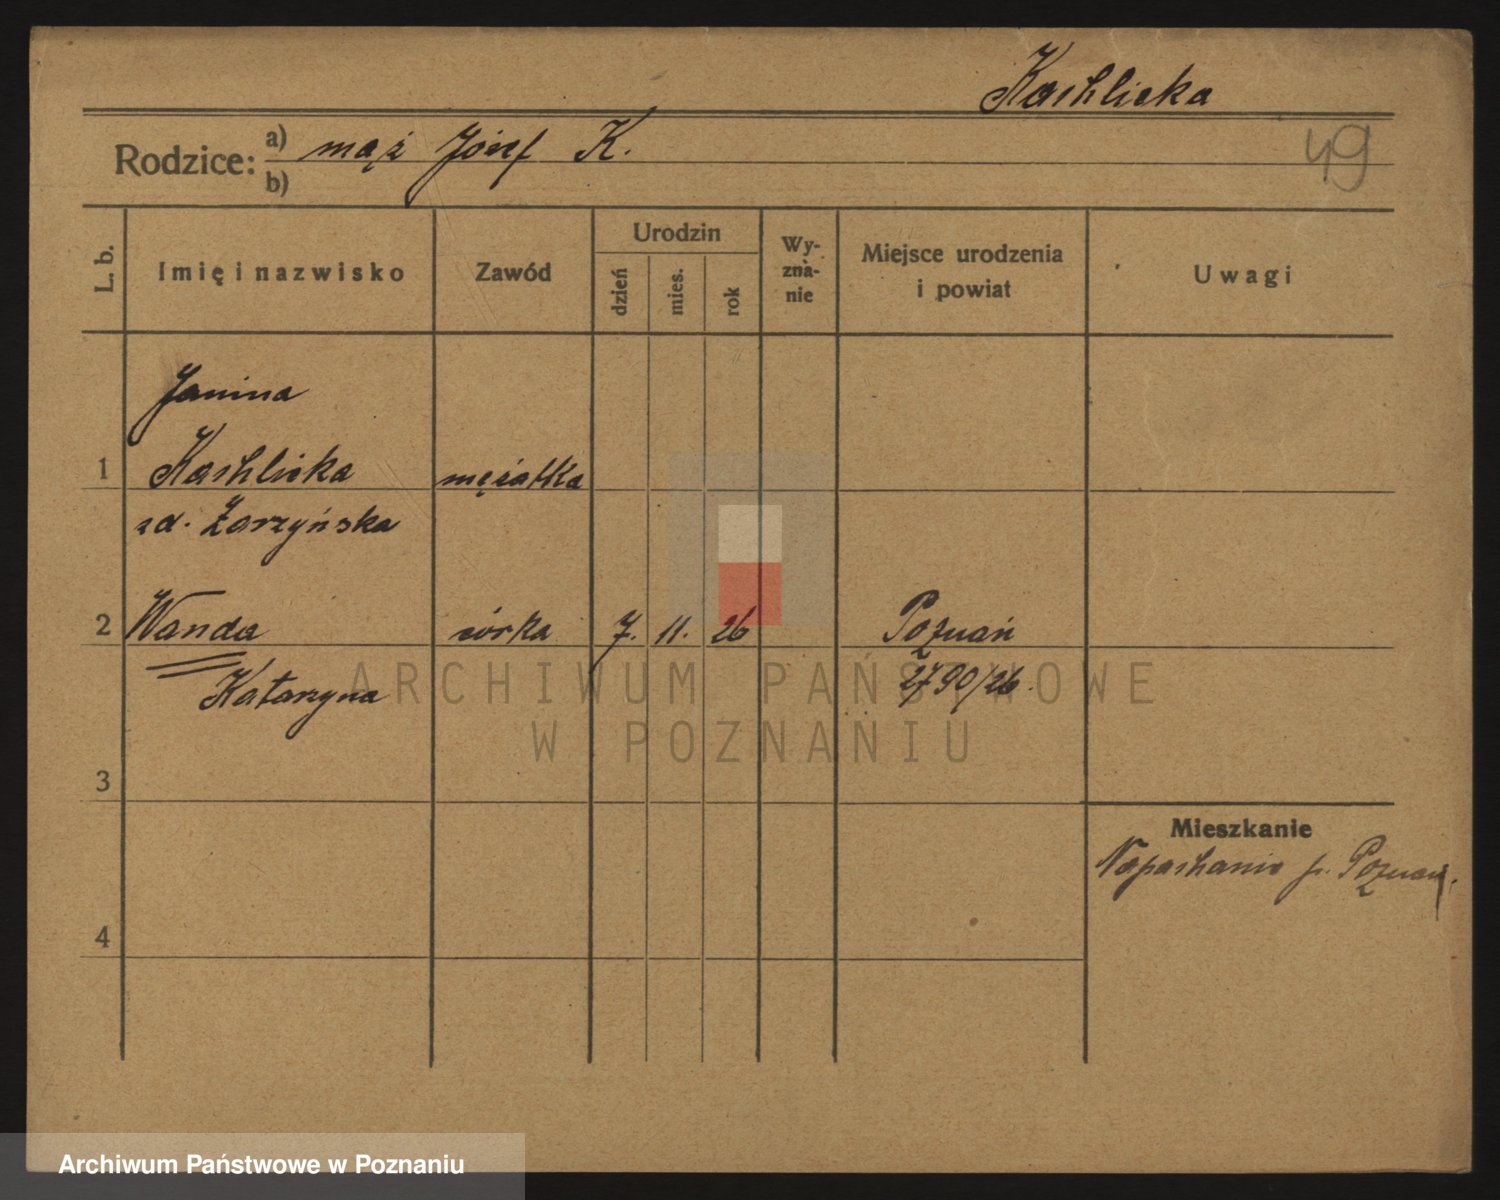 Kashlicka
49
Rodzice: a) mąż Józef K.
b)
L. b.
Imię i nazwisko
Zawód
Urodzin
dzień
mies.
rok
Wy-
zna-
nie
Miejsce urodzenia
i powiat
Uwagi
Janina
1 Kashlicka mężatka
zd. Zarzyńska
2 Wanda córka 7. 11. 26 Poznań
Katarzyna 2790/26.
3
Mieszkanie
Napachanie p. Poznań.
4
ARCHIWUM PAŃSTWOWE
W POZNANIU
Archiwum Państwowe w Poznaniu